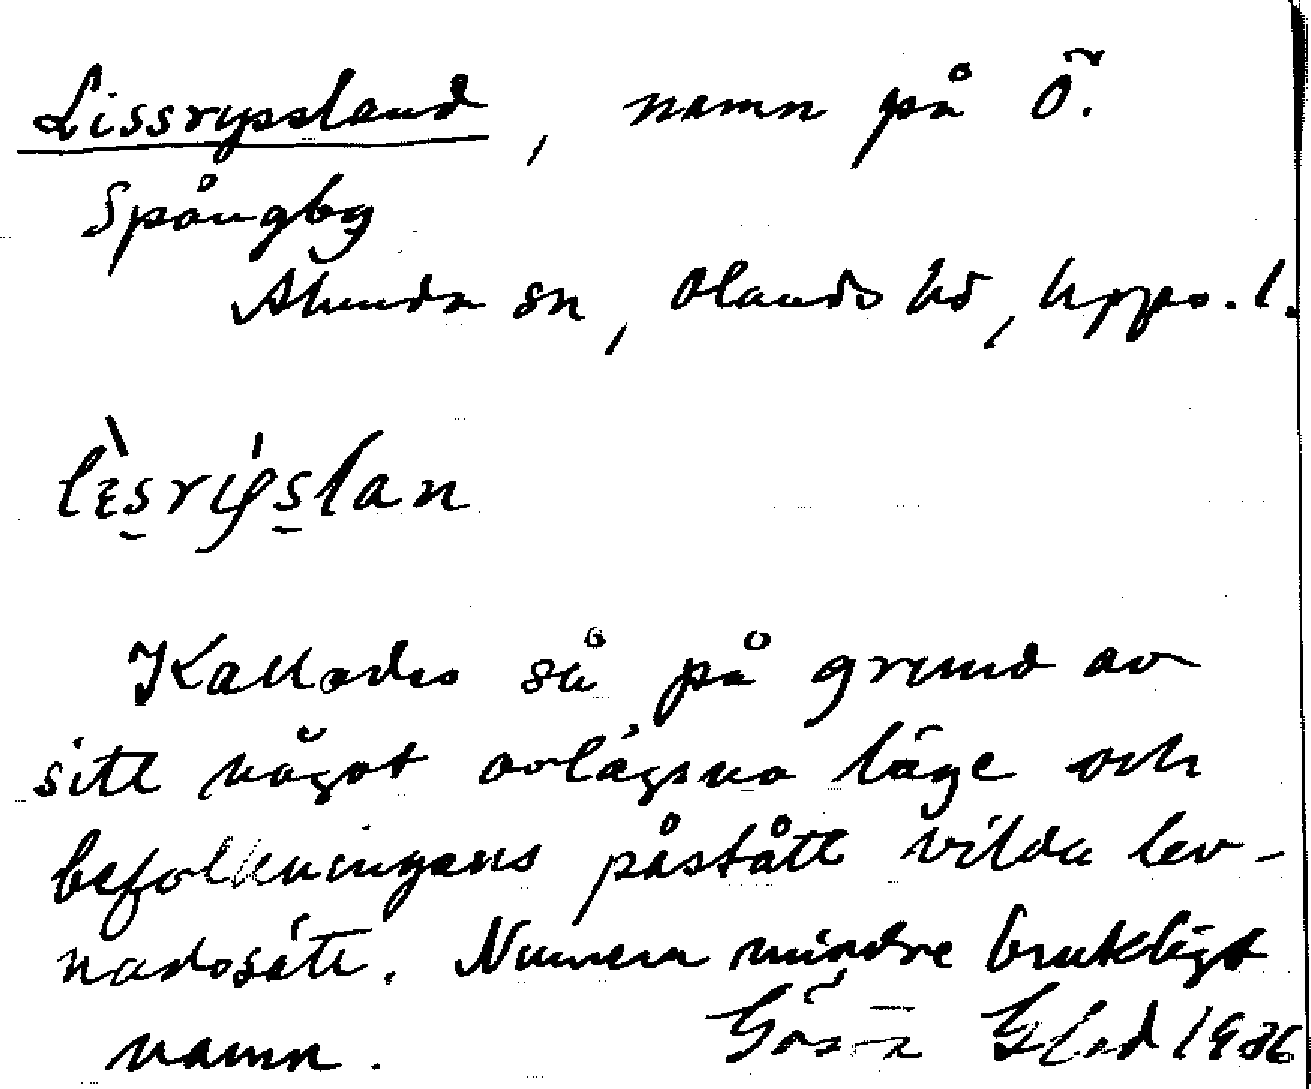 Lissryssland, namn på Ö.
Spångby
Alunda sn, Olands hd, Upps. l.
lɛ̀s̱rı̍ꞵs̱lan
Kallades så på grund av
sitt något avlägsna läge och
befolkningens påstått vilda lev-
nadssätt. Numera mindre brukligt
namn. Gösta Glad 1986